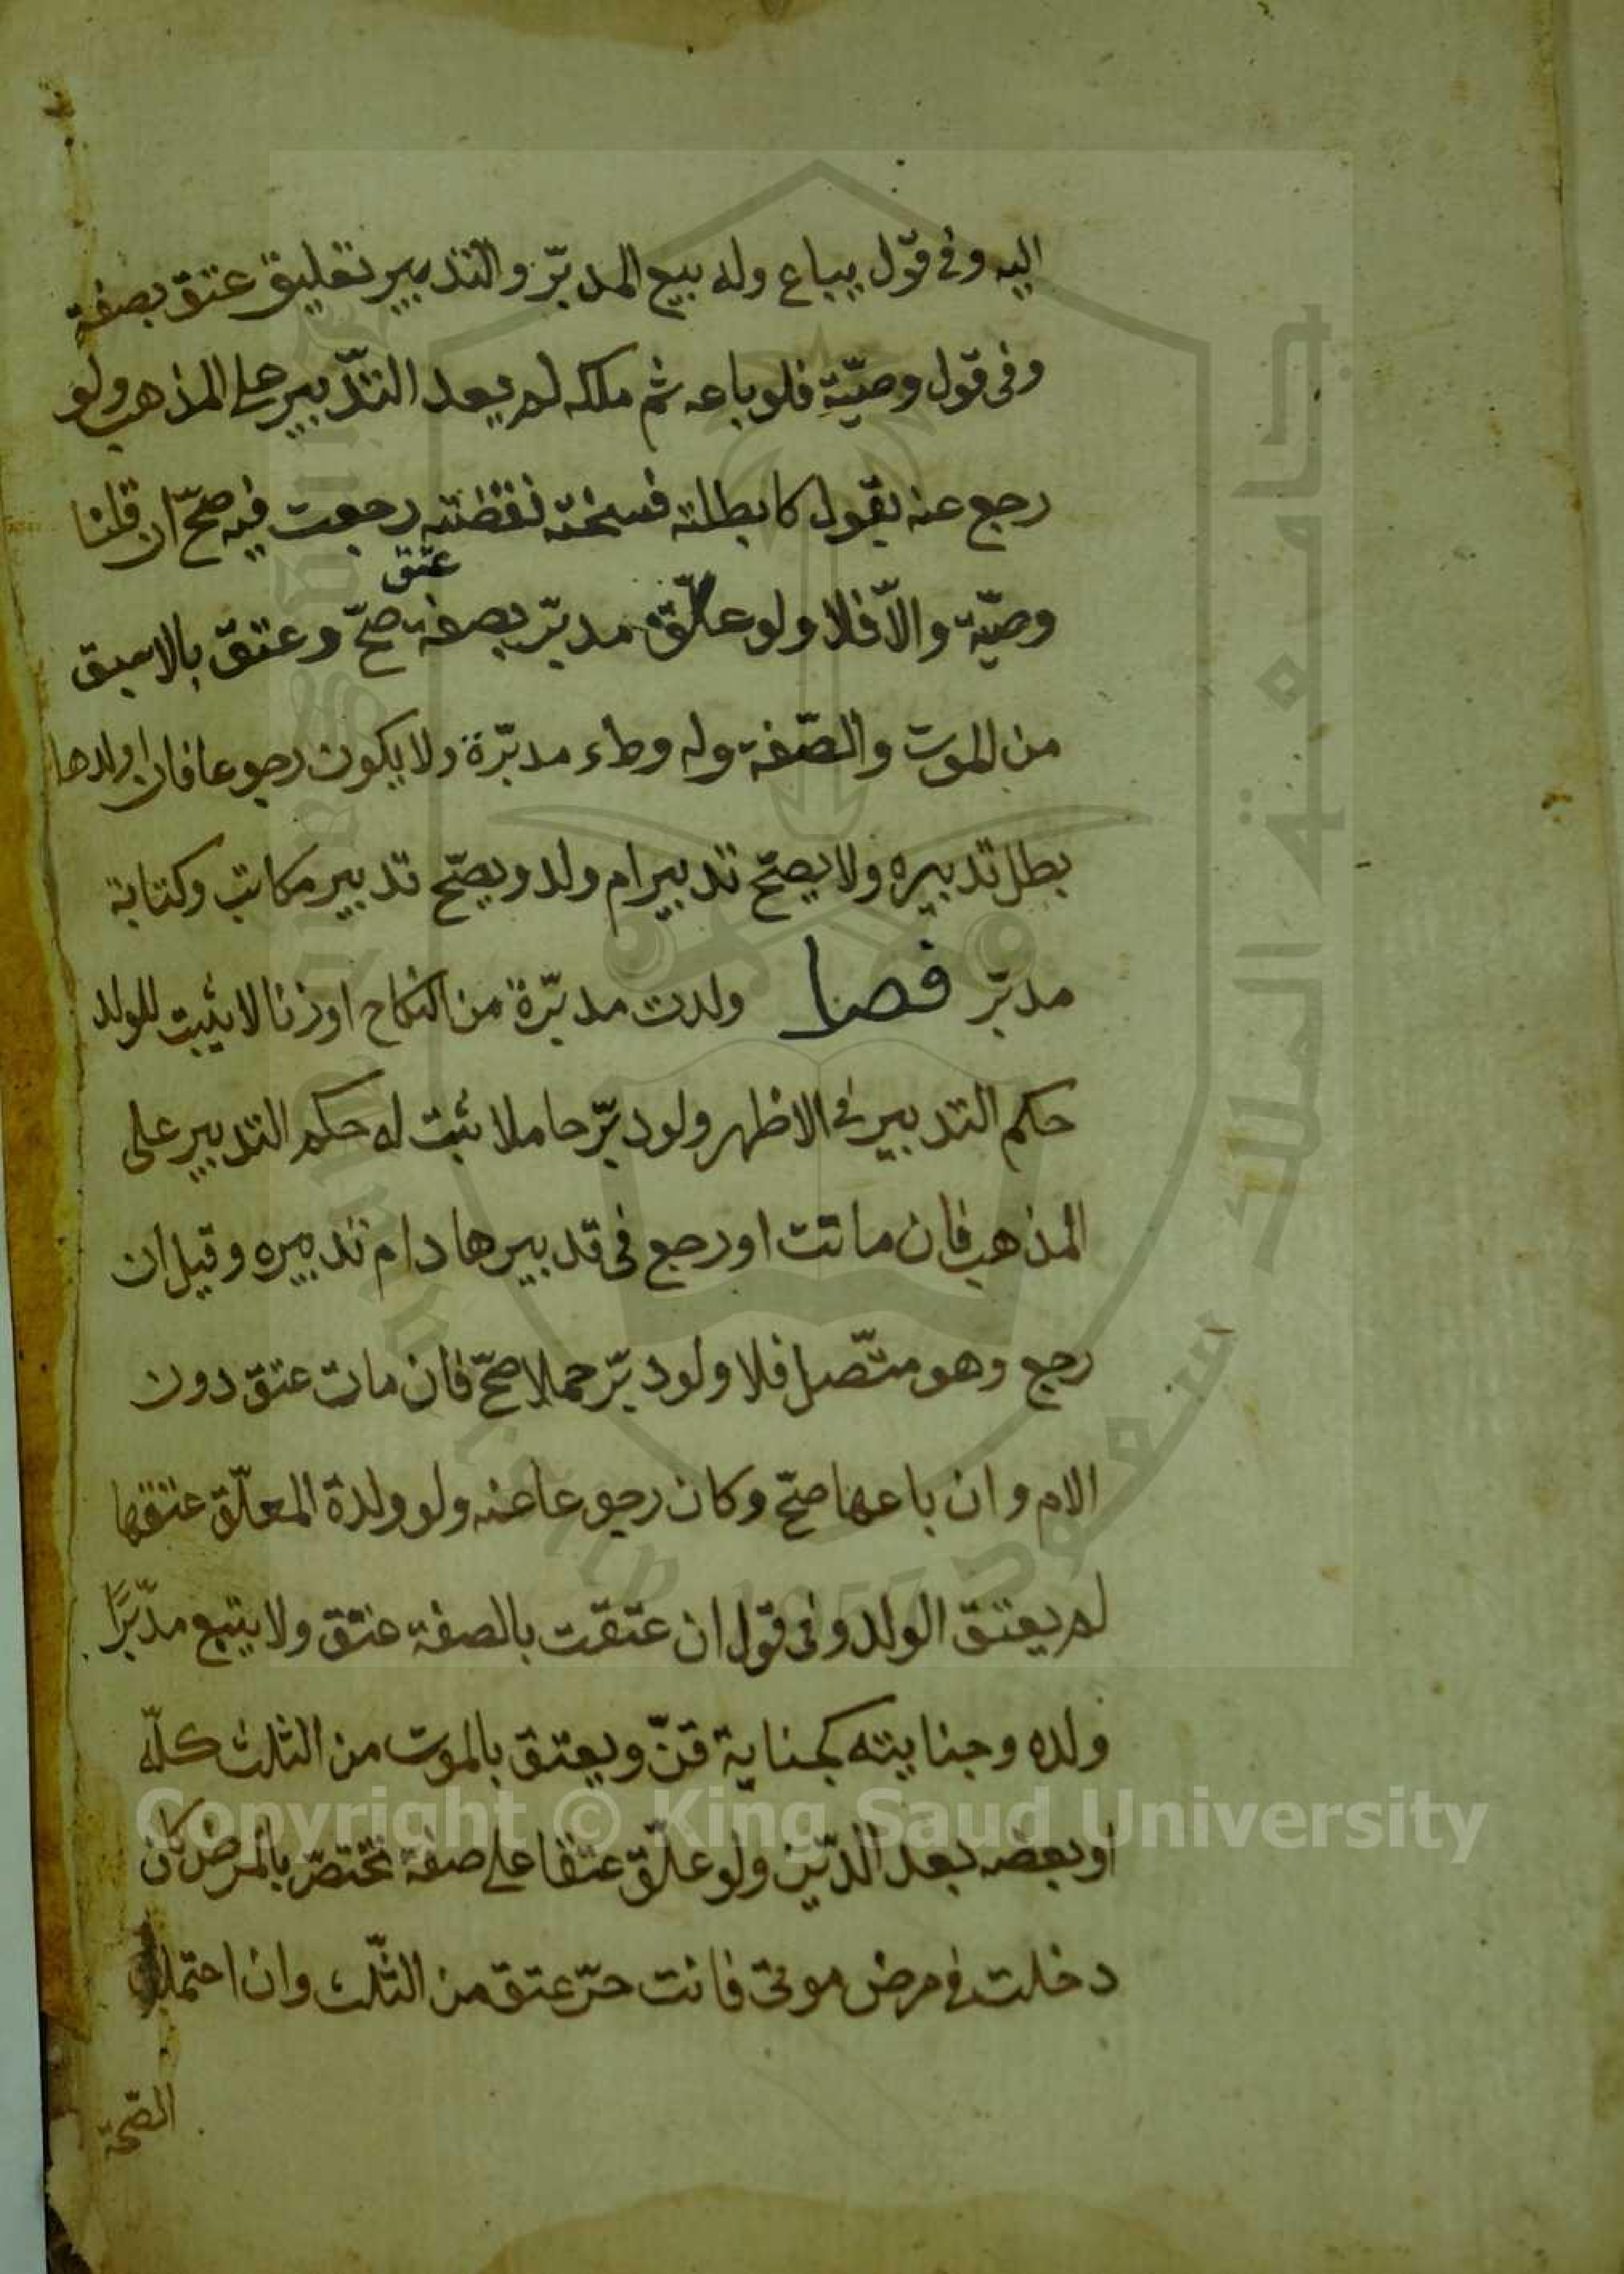 اليه وفي قول يباع وله بيع المدبّر والتدبير تعليق عتق بصفة
وفي قول وصيّة فلو باعه ثم ملكه لم يعد التدّبير على المذهب ولو
رجع عنه بقول كابطلته فسخته نقضته رجعت فيه صحّ ان قلنا
عتق
وصيّة والاّ فلا ولو علّق مدبّر بصفة صحّ وعتق بالاسبق
من الموت والصّفة وله وطء مدبّرة ولا يكون رجوعا فان اولدها
بطل تدبيره ولا يصحّ تدبير ام ولد ويصحّ تدبير مكاتب وكتابة
مدبّر فصل ولدت مدبّرة من النكاح او زنا لا يثبت للولد
حكم التدبير في الاظهر ولو دبّر حاملا ثبت له حكم التدبير على
المذهب فان ماتت او رجع في تدبيرها دام تدبيره وقيل ان
رجع وهو متّصل فلا ولو دبّر حملا صحّ فان مات عتق دون
الام وان باعها صحّ وكان رجوعا عنه ولو ولدة المعلّق عتقها
لم يعتق الولد وفي قول ان عتقت بالصفة عتق ولا يتبع مدبّرًا
ولده وجنايته كجناية قنّ ويعتق بالموت من الثلث كلّه
او بعضه بعد الدّين ولو علّق عتقا على صفة تختصّ بالمرض كان
دخلت في مرض موتي فانت حرّ عتق من الثّلث وان احتملت
الصّحة
Copyright © King Saud University
جامعة الملك سعود
King Saud University
1957